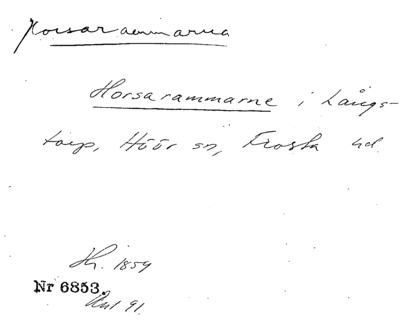 Horsarammarna
Horsarammarne i Långs-
torp, Höör sn, Frosta hd
Hr. 1859
Nr 6853.
Ant 91.